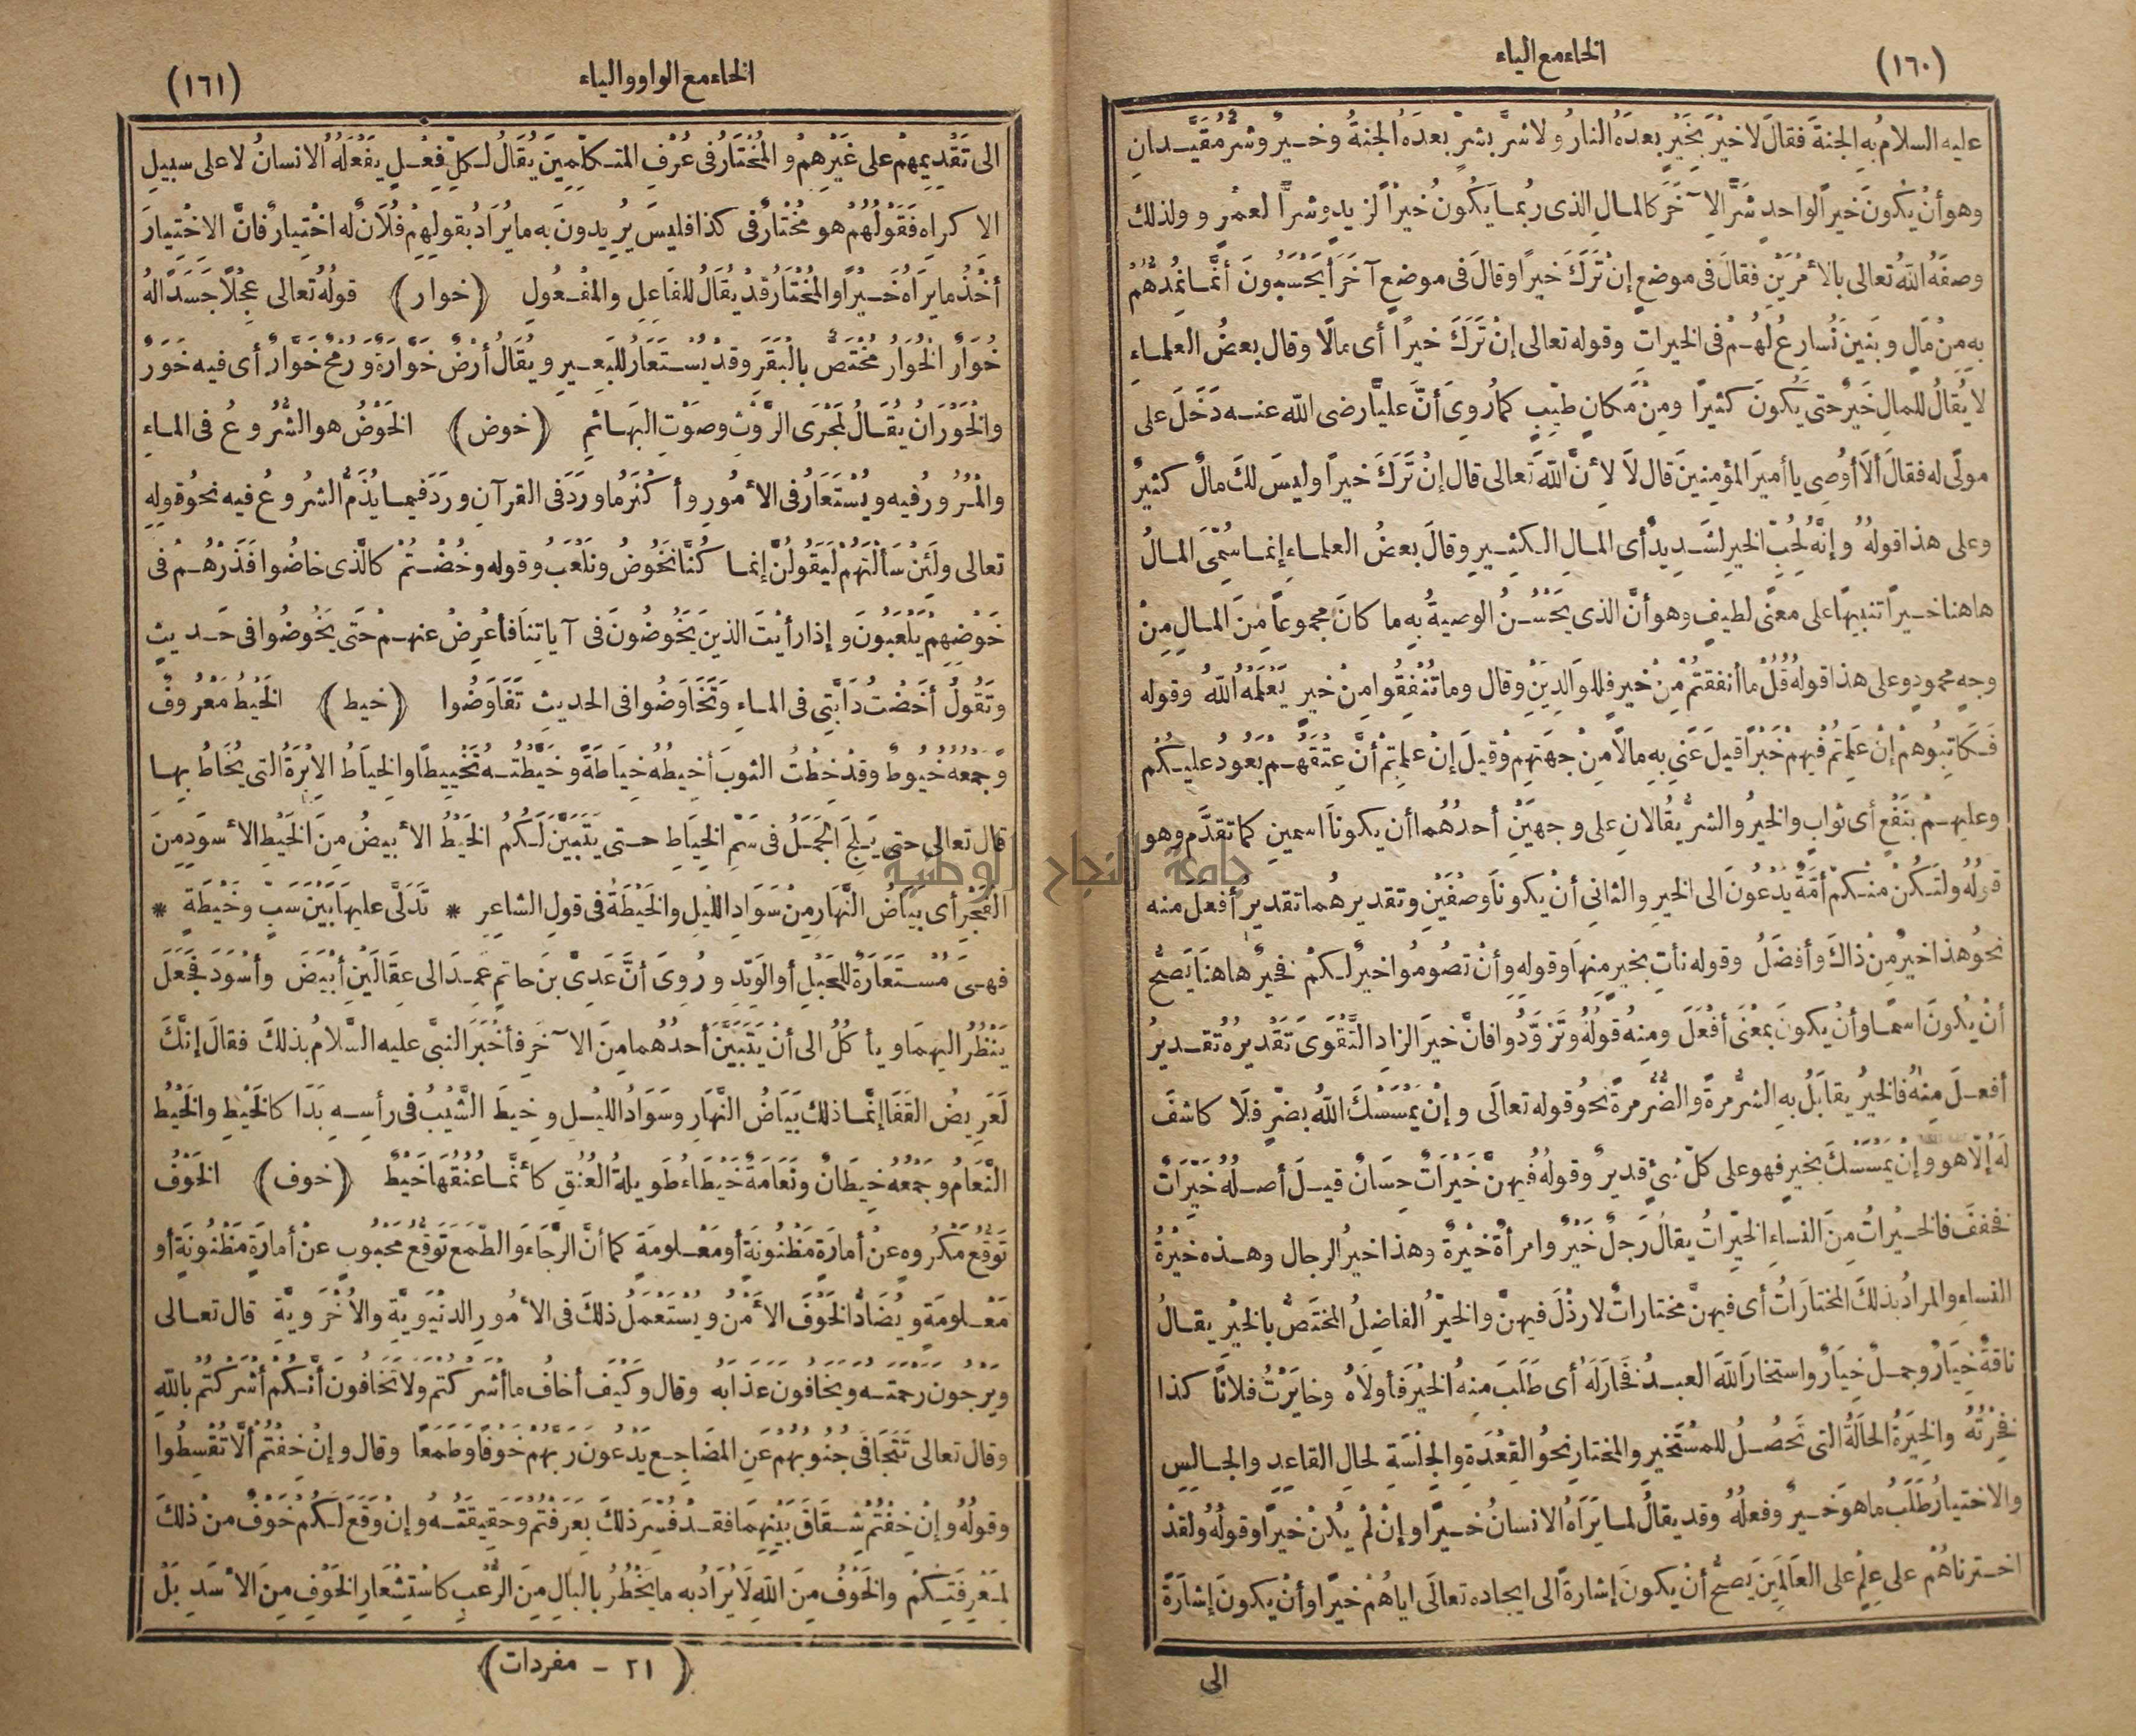 (١٦٠)
الخاء مع الياء
عليه السلامُ به الجنةَ فقالَ لا خيرَ بِخَيْرٍ بعدَهُ النارُ ولا شرَّ بشرٍّ بعدَهُ الجنةُ وخيرٌ وشرٌّ مُقَيَّدانِ
وهو أنْ يكُونَ خيراً لواحدٍ شَرًّا لِآخَرَ كالمالِ الذى ربُما يكُونُ خيراً لزيدٍ وشراًّ لعمرٍو ولذلك
وصفَهُ اللهُ تعالى بالأمْرَيْنِ فقالَ فى موضعٍ إنْ تَرَكَ خيراً وقالَ فى موضعٍ آخَرَ أيَحْسَبُونَ أنَّما نُمِدُّهُمْ
بِهِ مِنْ مَالٍ وبَنينَ نُسارِعُ لهُمْ فى الخيراتِ وقوله تعالى إنْ تَرَكَ خيراً أى مالًا وقال بعضُ العلماءِ
لا يُقالُ للمالِ خَيرٌ حتى يَكُونَ كثيرًا ومِنْ مَكانٍ طيِّبٍ كما رُوِىَ أنَّ عليًّا رضى الله عنه دَخَلَ على
مولًى له فقالَ ألَا أُوصِى يا أميرَ المؤمنينَ قال لَا لِأنَّ اللهَ تعالى قال إنْ تَرَكَ خيراً وليسَ لكَ مالٌ كثيرٌ
وعلى هذا قولُهُ وإنَّهُ لِحُبِّ الخيرِ لشديدٌ أى المالِ الكثيرِ وقالَ بعضُ العلماءِ إنما سُمِّىَ المالُ
هاهنا خيراً تنبيهًا على معنًى لطيفٍ وهو أنَّ الذى يَحْسُنُ الوصيةُ بِهِ ما كانَ مجموعاً مِنَ المالِ مِنْ
وجهٍ محمودٍ وعلى هذا قوله قُلْ ما أنفقتُمْ مِنْ خيرٍ فللوالدَيْنِ وقال وما تُنْفِقُوا مِنْ خيرٍ يَعْلَمْهُ اللهُ وقوله
فَكَاتِبُوهمْ إنْ عَلِمْتمْ فيهِمْ خَيْرًا قيلَ عَنَى بِهِ مالًا مِنْ جهَتهِمْ وقيلَ إنْ عَلِمْتمْ أنَّ عِتْقَهُمْ يَعُودُ عليكُمْ
وعليهمْ بنَفْعٍ أى ثوابٍ والخيرُ والشرُّ يقُالانِ على وجهيَنِ أحدُهُما أن يكوناَ اسمينِ كما تقدَّم وهو
قولُهُ ولتَكُنْ منكمْ أمَّةٌ يَدْعُونَ الى الخيرِ والثانى أنْ يكوناَ وصْفَيْنِ وتقديرهُما تقديرُ أفعَلَ منه
نحوُ هذا خيرٌ مِنْ ذاكَ وأفضَلُ وقوله نأتِ بخيرٍ مِنهاَ وقوله وأنْ تصُومُوا خيرٌ لكمْ فخيرٌ هاهناَ يَصحُّ
أنْ يكُونَ اسمًا وأنْ يكونَ بمعْنَى أفعَلَ ومنهُ قولُهُ وتَزَوَّدُوا فانَّ خيرَ الزادِ التَّقْوَى تَقْديرُهُ تقديرُ
أفعلَ مِنْهُ فالخيرُ يقابَلُ بِهِ الشرُّ مرةً والضُّرُّ مرةً نحوُ قوله تعالَى وإنْ يَمْسَسْكَ اللهُ بضرٍّ فلَا كاشفَ
لَهُ إلّا هو وإنْ يَمْسَسْكَ بخيرٍ فهو على كلِّ شئٍ قديرٌ وقولُهُ فيهنَّ خَيْرَاتٌ حِسَانٌ قيلَ أصلُهُ خَيِّرَاتٌ
فخففَ فالخيْراتُ مِنَ النساءِ الخيِّراتُ يقالُ رَجلٌ خَيْرٌ وامرأةٌ خَيْرةٌ وهذا خيرُ الرجال وهذه خَيْرةُ
النساءِ والمرادُ بذلكَ المختارَاتُ أى فيهنَّ مختاراتٌ لا رَذْلَ فيهنَّ والخيِّرُ الفاضِلُ المختَصُّ بالخيْرِ يقالُ
ناقةٌ خِيَارٌ وجملٌ خِيَارٌ واستخارَ اللهَ العبدُ فخَارَ لَهُ أى طَلَبَ منهُ الخيرَ فأولَاهُ وخايَرْتُ فلاناً كذا
فخِرْتُهُ والخِيَرَةُ الحالَةُ التى تَحصُلُ للمسْتَخيرِ والمختارِ نحوُ القِعْدَةِ والجِلْسَةِ لحالِ القاعدِ والجالسِ
والاختيارُ طَلَبُ ما هوَ خيرٌ وفعلُهُ وقد يقالُ لما يَرَاهُ الانسانُ خيرًا وإنْ لمْ يكُنْ خيراً وقولُهُ ولقدْ
اخترناهُمْ على عِلْمٍ على العَالَمِينَ يَصحُّ أنْ يكونَ إشارةً الى ايجاده تعالَى اياهُمْ خيرًا وأنْ يكونَ إشَارَةً
الى
(١٦١)
الخاء مع الواو والياء
الى تَقْدِيمِهِمْ على غَيْرِهِمْ والمُخْتَارُ فى عُرْفِ المتكلِّمِينَ يُقَالُ لكلِّ فِعْلٍ يفْعَلُهُ الانسانُ لا على سبيلِ
الإكراهِ فَقَوْلُهُمْ هو مُخْتَارٌ فى كذا فليسَ يُرِيدونَ به ما يُرَادُ بقولِهِمْ فُلَانٌ له اخْتِيارٌ فانَّ الاخْتِيارَ
أخْذُ ما يرَاهُ خَيْرًا والمُخْتَارُ قدْ يُقَالُ للفَاعِلِ والمفْعُولِ (خوار) قولُهُ تعالى عِجْلًا جَسَدًا لهُ
خُوَارٌ الخُوَارُ مُخْتَصٌّ بالْبَقَرِ وقدْ يُسْتَعَارُ للبَعيرِ ويُقَالُ أرْضٌ خَوَّارَةٌ ورُمْحٌ خَوَّارٌ أى فيه خَوَرٌ
والخَوْرَانُ يُقَالُ لمَجْرَى الرَّوْثِ وصَوْتِ البَهَائمِ (خوض) الخَوْضُ هو الشُّرُوعُ فى الماءِ
والمُرُورُ فيه ويُسْتَعَارُ فى الأمُورِ وأكثرُ ما وردَ فى القرآنِ وردَ فيما يُذَمُّ الشرُوعُ فيه نحوُ قولِهِ
تعالى ولَئِنْ سَألْتَهُمْ لَيَقُولُنَّ إنما كُنَّا نخُوضُ ونلْعَبُ وقوله وخُضْتُمْ كالَّذى خاضُوا فَذَرْهُمْ فى
خَوْضِهِمْ يَلْعَبُونَ وإذا رأيْتَ الذينَ يَخُوضُونَ فى آياتِنَا فأعْرِضْ عنهمْ حتَى يخُوضُوا فى حَديثٍ
وتَقُولُ أخَضْتُ دَابَّتِى فى الماءِ وتَخَاوَضُوا فى الحديثِ تَفَاوَضُوا (خيط) الخَيْطُ مَعْرُوفٌ
وجَمعُهُ خُيُوطٌ وقدْ خِطْتُ الثوبَ أخِيطُهُ خِيَاطَةً وخَيَّطْتُهُ تَخْيِيطًا والخِيَاطُ الإبْرَةُ التى يُخَاطُ بها
قال تعالى حتى يَلِجَ الجَمَلُ فى سَمِّ الخِيَاطِ حتى يَتَبَيَّنَ لَكُمُ الخَيْطُ الأبيضُ مِنَ الخَيْطِ الأسوَدِ مِنَ
الفَجْرِ أى بَيَاضُ النَّهَارِ مِنْ سَوَادِ اللَّيلِ والخَيْطَةُ فى قولِ الشاعرِ * تَدَلَّى عليهَا بَيْنَ سَبٍّ وخَيْطَةٍ *
فهىَ مُسْتَعَارَةٌ للحَبْلِ أو الوَتِدِ ورُوِىَ أنَّ عَدِىَّ بنَ حاتمٍ عَمدَ الى عِقَالَيْنِ أبْيَضَ وأسْوَدَ فجَعَلَ
يَنْظُرُ اليهمَا ويأكُلُ الى أنْ يَتَبَيَّنَ أحدُهُما مِنَ الآخَرِ فأخْبَرَ النبىَّ عليه السَّلامُ بذلكَ فقالَ إنَّكَ
لَعَرِيضُ القَفَا إنَّما ذلك بَيَاضُ النَّهَارِ وسَوَادُ الليْلِ وخِيطَ الشَّيْبُ فى رأسِهِ بَدَا كالخَيْطِ والخَيْطُ
النَّعَامُ وجَمْعُهُ خِيطَانٌ ونَعَامَةٌ خَيْطَاءُ طَوِيلةُ العُنُقِ كأنَّما عُنُقُهَا خَيْطٌ (خوف) الخَوْفُ
تَوَقُّعُ مَكْرُوهٍ عنْ أمارَةٍ مَظْنُونَةٍ أو مَعْلومةٍ كما أنَّ الرَّجَاءَ والطَّمَعَ تَوَقُّعُ محْبُوبٍ عنْ أمارَةٍ مَظْنُونَةٍ أو
مَعْلومَةٍ ويُضَادُّ الخَوْفَ الأمْنُ ويُسْتَعْمَلُ ذلكَ فى الأمُورِ الدنْيَوِيَّةِ والأُخْرَوِيَّةِ قال تعالى
ويَرْجُونَ رَحمتَهُ ويخافُونَ عذَابَهُ وقال وكَيْفَ أخافُ ما أشْرَكْتُمْ ولَا تَخَافُونَ أنَّكُمْ أشْرَكْتُمْ باللهِ
وقال تعالى تَتَجَافَى جُنُوبُهُمْ عَنِ المضَاجِعِ يَدْعُونَ رَبَّهُمْ خَوْفًا وطَمَعًا وقال وإنْ خِفْتُمْ ألَّا تُقْسِطُوا
وقولُهُ وإنْ خِفْتُمْ شِقَاقَ بَيْنِهِمَا فقدْ فُسِّرَ ذلكَ بعَرَفْتُمْ وحَقِيقَتُهُ وإنْ وَقَعَ لَكُمْ خَوْفٌ مِنْ ذلكَ
لمَعْرِفَتِكُمْ والخَوْفُ مِنَ اللهِ لَا يُرَادُ به ما يَخْطُرُ بالبَالِ مِنَ الرُّعْبِ كاسْتِشْعَارِ الخَوْفِ مِنَ الأسَدِ بَلْ
(٢١ - مفردات)
جامعة النجاح الوطنية